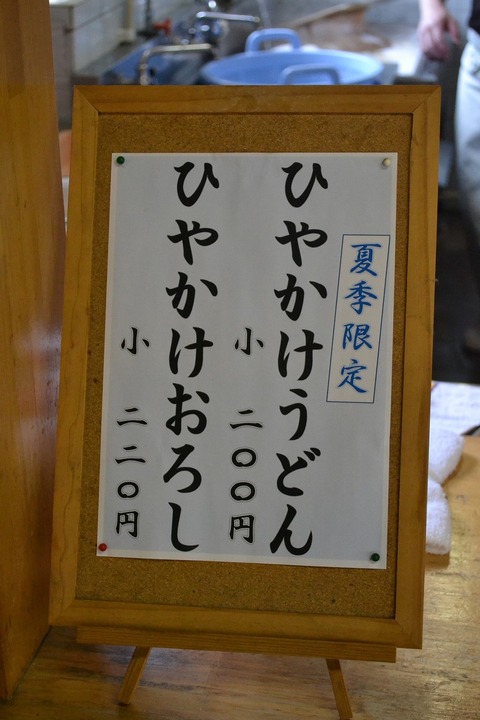 夏季限定
ひやかけうどん
小 二〇〇円
ひやかけおろし
小 二二〇円